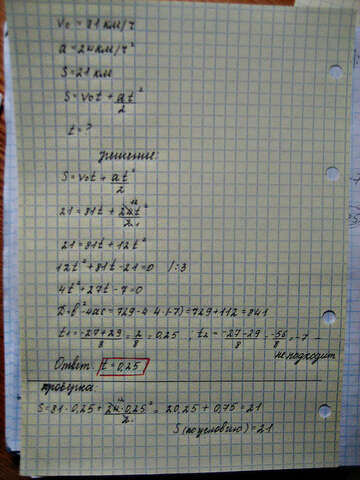 v₀ = 81 км/ч
a = 24 км/ч²
S = 21 км
S = v₀t + at²/2
t = ?
решение:
S = v₀t + at²/2
21 = 81t + 24t²/2
21 = 81t + 12t²
12t² + 81t - 21 = 0 /:3
4t² + 27t - 7 = 0
D = b² - 4ac = 729 - 4·4·(-7) = 729 + 112 = 841
t₁ = -27+29/8 = 2/8 = 0,25 ; t₂ = -27-29/8 = -56/8 = -7 -
не подходит
Ответ: t = 0,25
проверка:
S = 81·0,25 + 24·0,25²/2 = 20,25 + 0,75 = 21
S (по условию) = 21